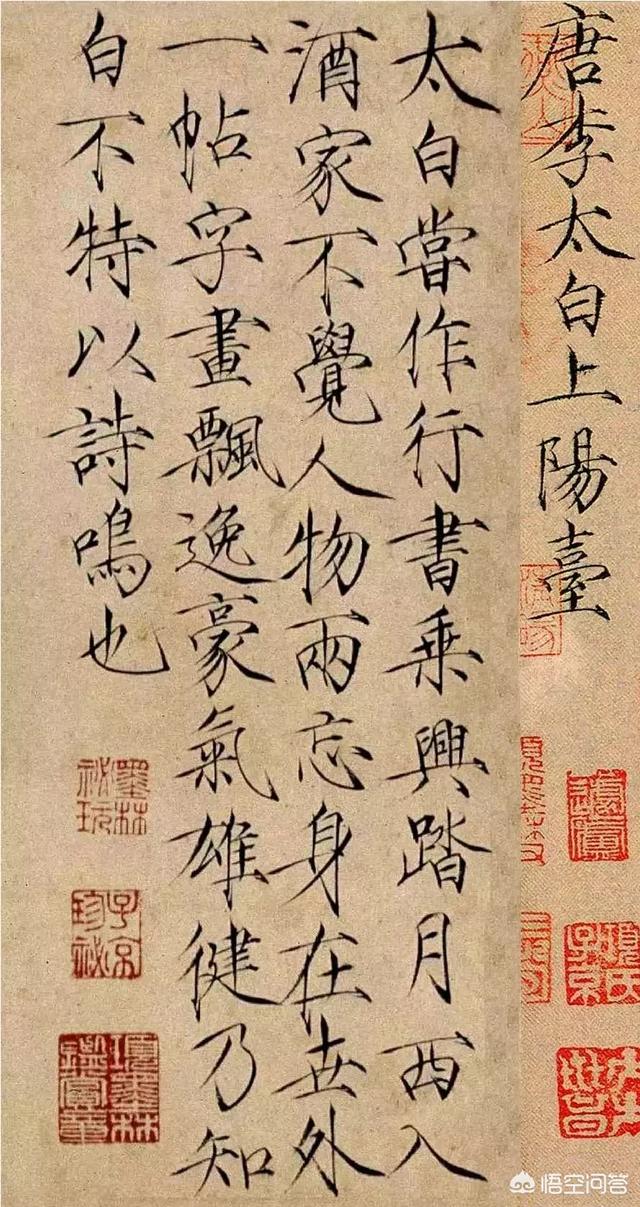 唐李太白上陽臺
太白嘗作行書乘興踏月西入
酒家不覺人物兩忘身在世外
一帖字畫飄逸豪氣雄健乃知
白不特以詩鳴也
墨林
祕玩
子京
珍祕
項墨林
鑑賞章
項氏
子京
悟空问答